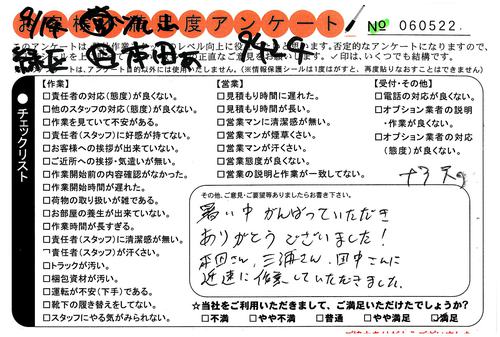 お客様満足度アンケート
№ 060522
このアンケートは、
サービスのレベル向上に
否定的なアンケートになりますので、
正直なご意見をお願いします。✓印は、いくつでも結構です。
アンケート目的以外には使用いたしません。(※情報保護シールは1度はがすと、再度貼りなおすことはできません)
チェックリスト
【作業】
□責任者の対応(態度)が良くない。
□他のスタッフの対応(態度)が良くない。
□作業を見ていて不安がある。
□責任者(スタッフ)に好感が持てない。
□お客様への挨拶が出来ていない。
□ご近所への挨拶・気遣いが無い。
□作業開始前の内容確認がなかった。
□作業開始時間が遅れた。
□荷物の取り扱いが雑である。
□お部屋の養生が出来ていない。
□作業時間が長すぎる。
□責任者(スタッフ)に清潔感が無い。
□責任者(スタッフ)が汗くさい。
□トラックが汚い。
□梱包資材が汚い。
□運転が不安(下手)である。
□靴下の履き替えをしてない。
□スタッフにやる気がみられない。
【営業】
□見積もり時間に遅れた。
□見積もり時間が長い。
□営業マンに清潔感が無い。
□営業マンが煙草くさい。
□営業マンが汗くさい。
□営業態度が良くない。
□営業の説明・対応が良くない。
【受付・その他】
□電話の対応が良くない。
□オプション業者の説明・作業が良くない。
□オプション業者の対応(態度)が良くない。
その他、ご意見・ご要望等ありましたらお書き下さい。
暑い中がんばっていただき
ありがとうございました!
平田さん、三浦さん、田中さんに
迅速に作業していただきました。
☆当社をご利用いただきまして、ご満足いただけたでしょうか?
□不満 □やや不満 □普通 □やや満足 ☑満足